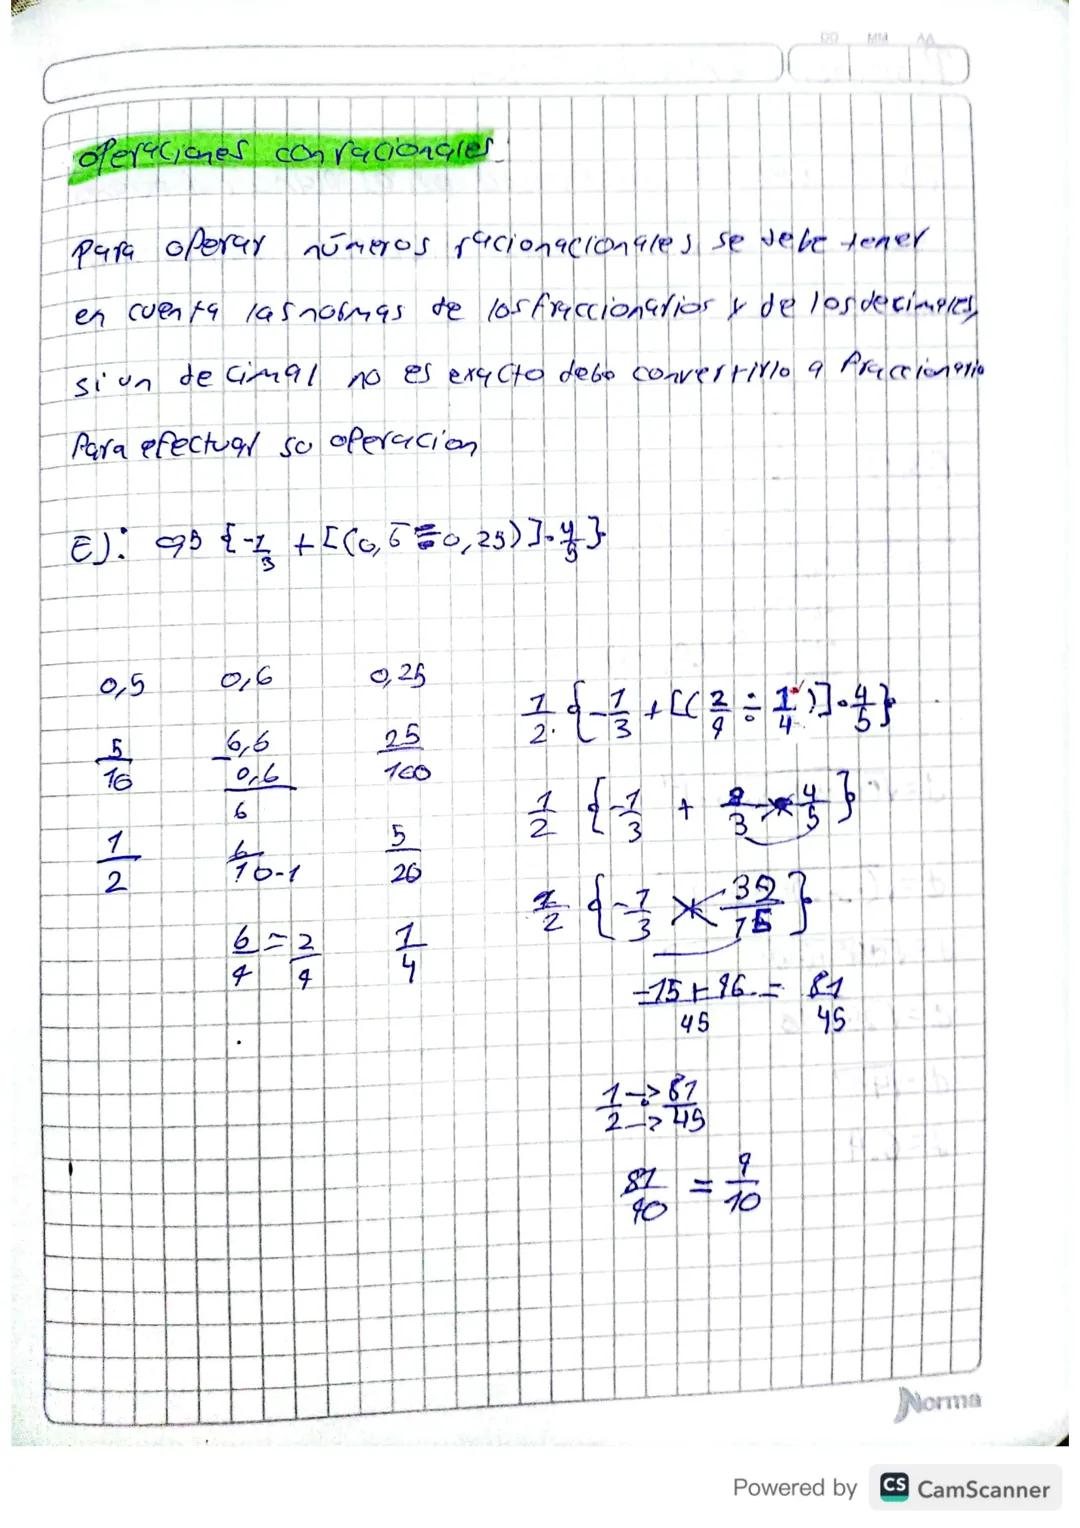 DD MM AA
operaciones con racionales.
Para operar números racionacionales se debe tener
en cuenta las normas de los fraccionarios y de los decimales,
si un decimal no es exacto debo convertirlo a fraccionario
Para efectuar su operacion
EJ: 0,5 {-1/3 + [(0,6 ÷ 0,25)]·4/5}
0,5 0,6 0,25
1/2 {-1/3 + [(2/9 ÷ 1/4)]·4/5}
5/10 -6,6 25/100
0,6
6
1/2 {-1/3 + 8/3 × 4/5}
1/2 6/10-1 5/20
1/2 {-1/3 × 32/15}
6/9 = 2/9 1/4
-15+96/45 = 81/45
1/2 -> 81/45
81/90 = 9/10
Norma
Powered by CS CamScanner